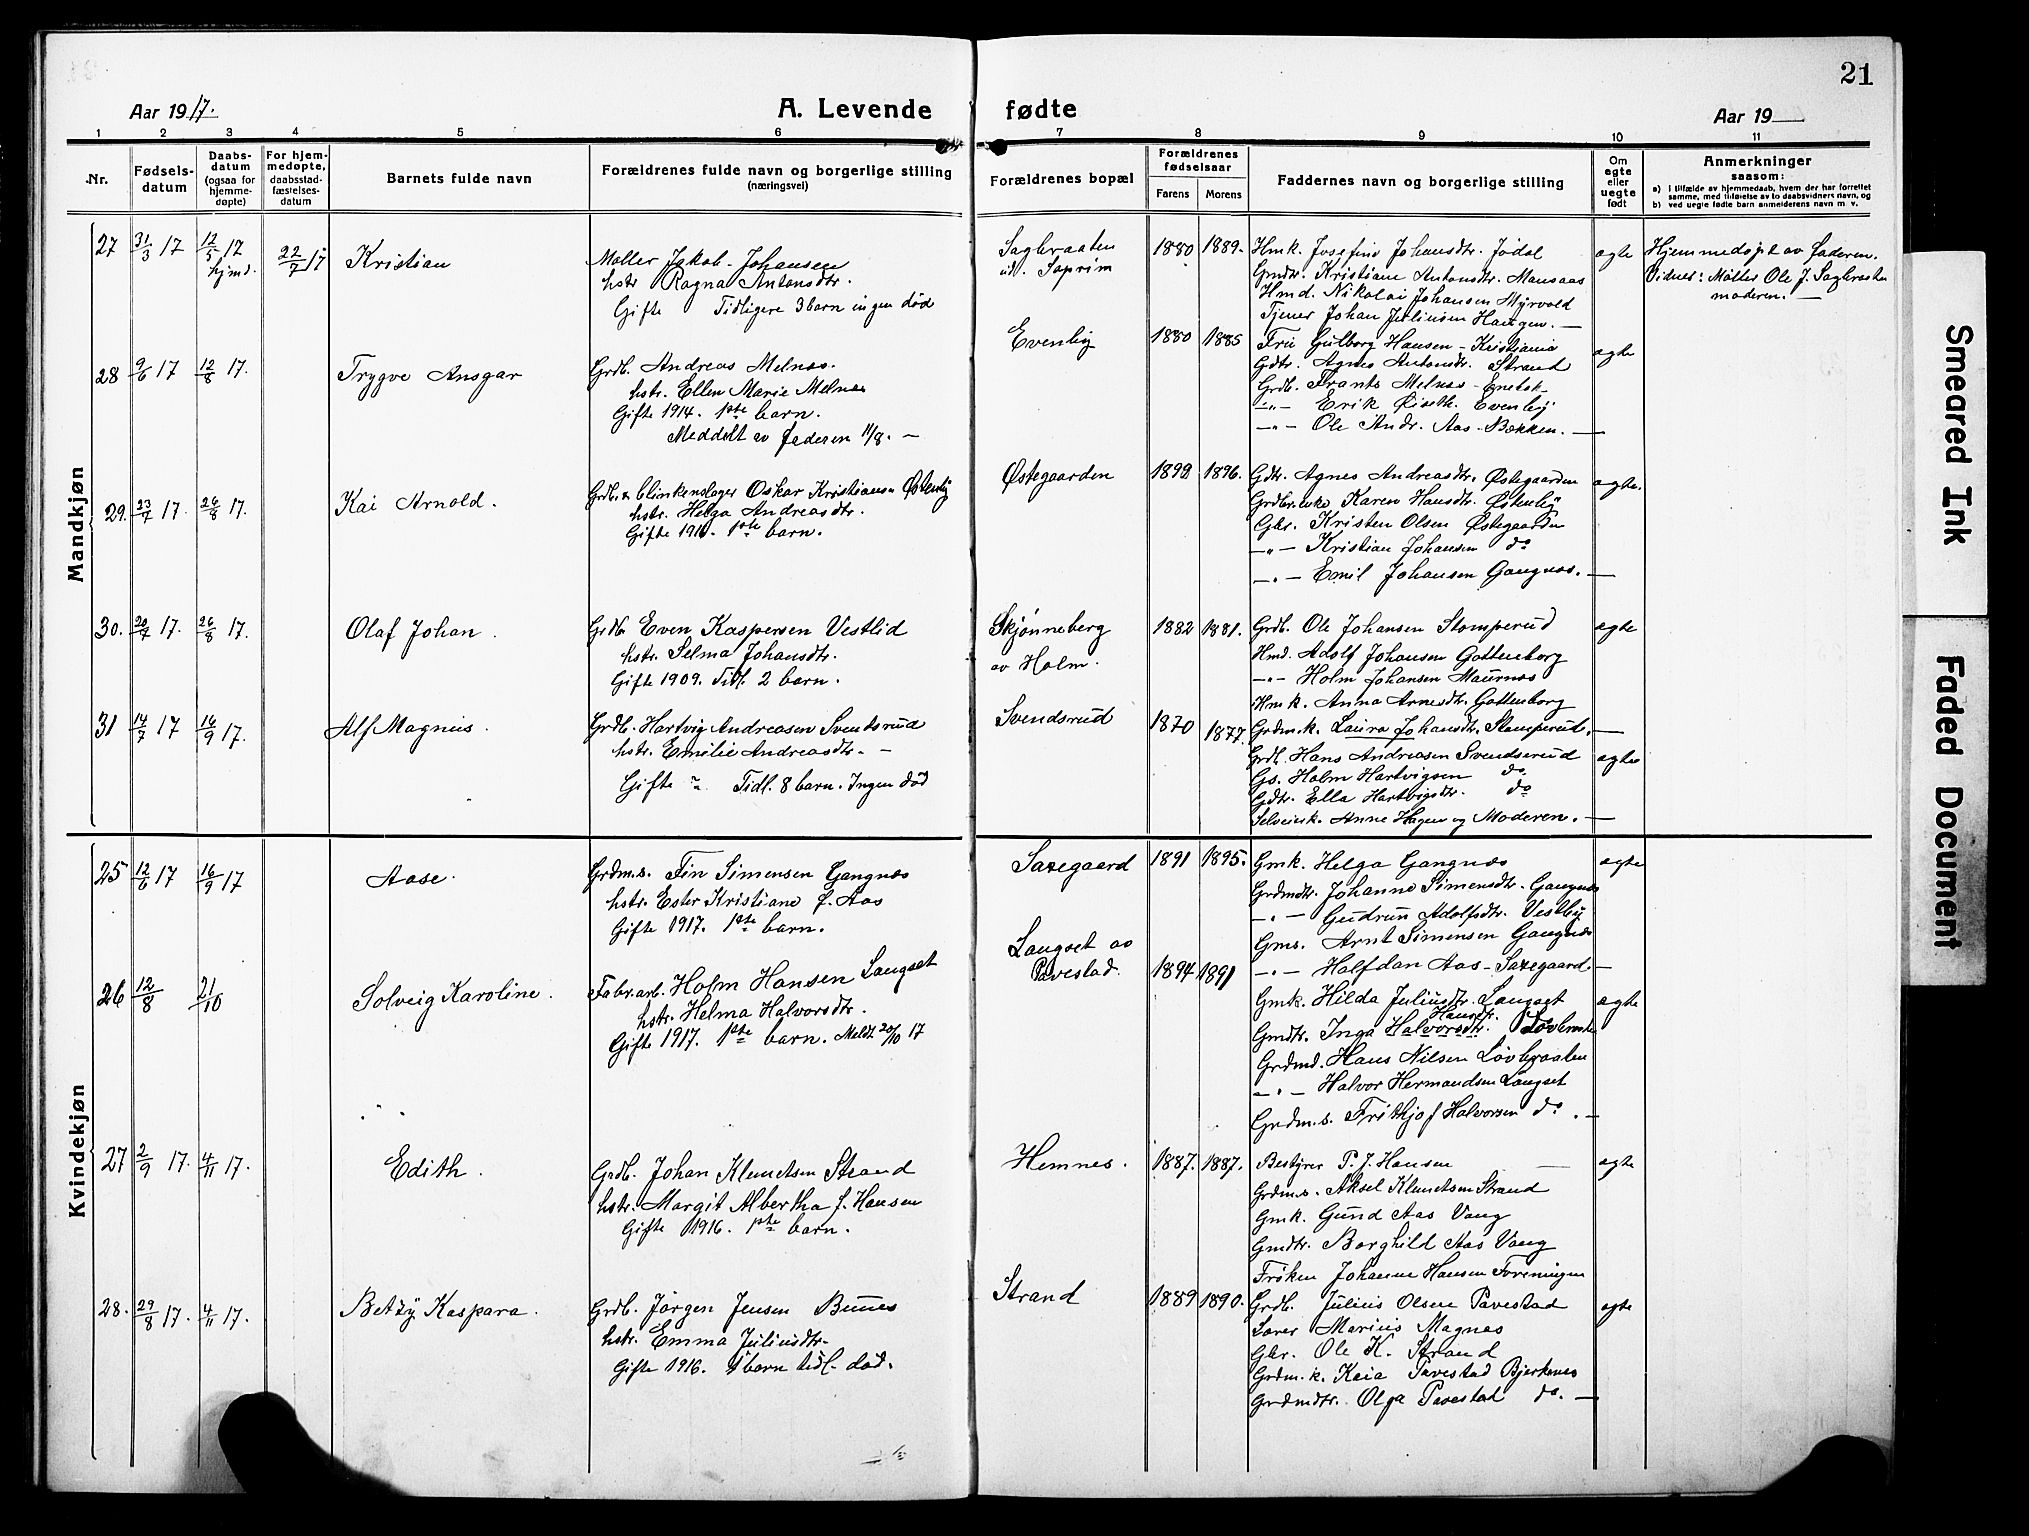 21
Aar 1917.
A. Levende fødte
Aar 19
1 2 3 4 5 6 7 8 9 10 11
Nr.
Fødsels-datum
Daabs-datum (ogsaa for hjemme-døpte)
For hjem-medøpte, daabsstad-fæstelses-datum
Barnets fulde navn
Forældrenes fulde navn og borgerlige stilling (næringsvei)
Forældrenes bopæl
Forældrenes fødselsaar
Farens
Morens
Faddernes navn og borgerlige stilling
Om egte eller uegte født
Anmerkninger saasom:
a) i tilfælde av hjemmedaab, hvem der har forrettet samme, med tilføielse av to daabsvidners navn, og
b) ved uegte fødte barn anmelderens navn m. v.
Mandkjøn
27 31/3 17 12/5 17 hjmd. 22/7 17 Kristian
Møller Jakob Johansen
hstr Ragna Antonsdtr.
Gifte Tidligere 3 barn ingen død
Sagbraaten
1880 1889.
Hmk. Josefine Johansdtr. Jødal
Gmdtr. Kristiane Antonsdtr. Mausaas
Hmd. Nikolai Johansen Myrvold
Tjener Johan Juliusen Haugen. —
ægte
Hjemmedøpt av faderen.
Vidner: Møller Ole J. Sagbraaten
moderen. —
28 9/6 17 12/8 17. Trygve Ansgar
Grdb. Andreas Melnæs.
hstr. Ellen Marie Melnæs
Gifte 1914. 1ste barn.
Meddelt av faderen 11/8. —
Evenby
1880 1885
Fru Gulborg Hansen - Kristiania
Gdtr. Agnes Antonsdtr. Strand
Grdb. Frants Melnæs -
—"— Erik Øiseth. Evenby
—"— Ole Andr. Aas - Bækken. —
ægte
29. 23/7 17. 26/8 17. Kai Arnold.
Grdb. & blikkenslager Oskar Kristiansen Østenby
hstr. Helga Andreasdtr.
Gifte 1916. 1ste barn.
Østegaarden
1892 1896.
Gdtr. Agnes Andreasdtr. Østegaarden
Grdbr.enke Karen Hansdtr. Østenby
Gbr. Kristen Olsen Østegaarden
—"— Kristian Johansen do
—"— Emil Johansen Gangnæs. —
ægte.
30. 20/7 17. 26/8 17. Olaf Johan.
Grdb. Even Kaspersen Vestlid
hstr. Selma Johansdtr.
Gifte 1909. Tidl. 2 barn.
Skjønneberg
av Holm.
1882 1881.
Grdb. Ole Johansen Stomperud
Hmd. Adolf Johansen Gottenborg
—"— Holm Johansen Maurnæs
Hmk. Anna Arnesdtr. Gottenborg
Grdmk. Laura Johansdtr. Stomperud. —
ægte
31 14/7 17 16/9 17. Alf Magnus.
Grdb. Hartvig Andreasen Svendsrud
hstr. Emilie Andreasdtr. —
Gifte ~ Tidl. 8 barn. Ingen død
Svendsrud
1870 1877.
Grdb. Hans Andreasen Svendserud
Gs. Holm Hartvigsen do
Gdtr. Ella Hartvigsdtr. do
Selveierk. Anne Hagen og Moderen. —
ægte
Kvindekjøn
25 12/6 17 16/9 17 Aase.
Grdm.s. Fin Simensen Gangnæs
hstr. Ester Kristiane f. Aas
Gifte 1917. 1ste barn.
Saxegaard
1891 1895.
Gmk. Helga Gangnæs
Grdmdtr. Johanne Simensdtr. Gangnæs
—"— Gudrun Adolfsdtr. Vestby
Gms. Arnt Simensen Gangnæs
—"— Halfdan Aas - Saxegaard. —
ægte
26 12/8 21/10 Solveig Karoline.
Fabr.arb. Holm Hansen Langset
hstr. Helma Halvorsdtr.
Gifte 1917. 1ste barn. Meldt 20/10 17
Langset av
Pavestad.
1894 1891
Gmk. Hilda Juliusdtr. Langset
Gmdtr. Inga Halvorsdtr. Hansdtr.
Grdmd. Hans Nilsen Løvbraaten
—"— Halvor Hermandsen Langset
Grdm.s. Frithjof Halvorsen do. —
ægte
27 2/9 17. 4/11 17. Edith.
Grdb. Johan Klemetsen Strand
hstr. Margit Albertha f. Hansen
Gifte 1916. 1ste barn.
Hemnes.
1887. 1887.
Bestyrer P. J. Hansen —
Grdm.s. Aksel Klemetsen Strand
Gmk. Gund Aas Vang
Gmdtr. Borghild Aas Vang
Frøken Johanne Hansen Foreningen
ægte
28. 29/8 17. 4/11 17. Betzy Kaspara.
Grdb. Jørgen Jensen Bunes
hstr. Emma Juliusdtr.
Gifte 1916. 1 barn tidl. død.
Strand
1889 1890.
Grdb. Julius Olsen Pavestad
Lærer Marius Magnæs
Gbr. Ole K. Strand
Grdm.k. Kaia Pavestad Bjerkenes
Grdmdtr. Olga Pavestad do. —
ægte
Smeared Ink
Faded Document